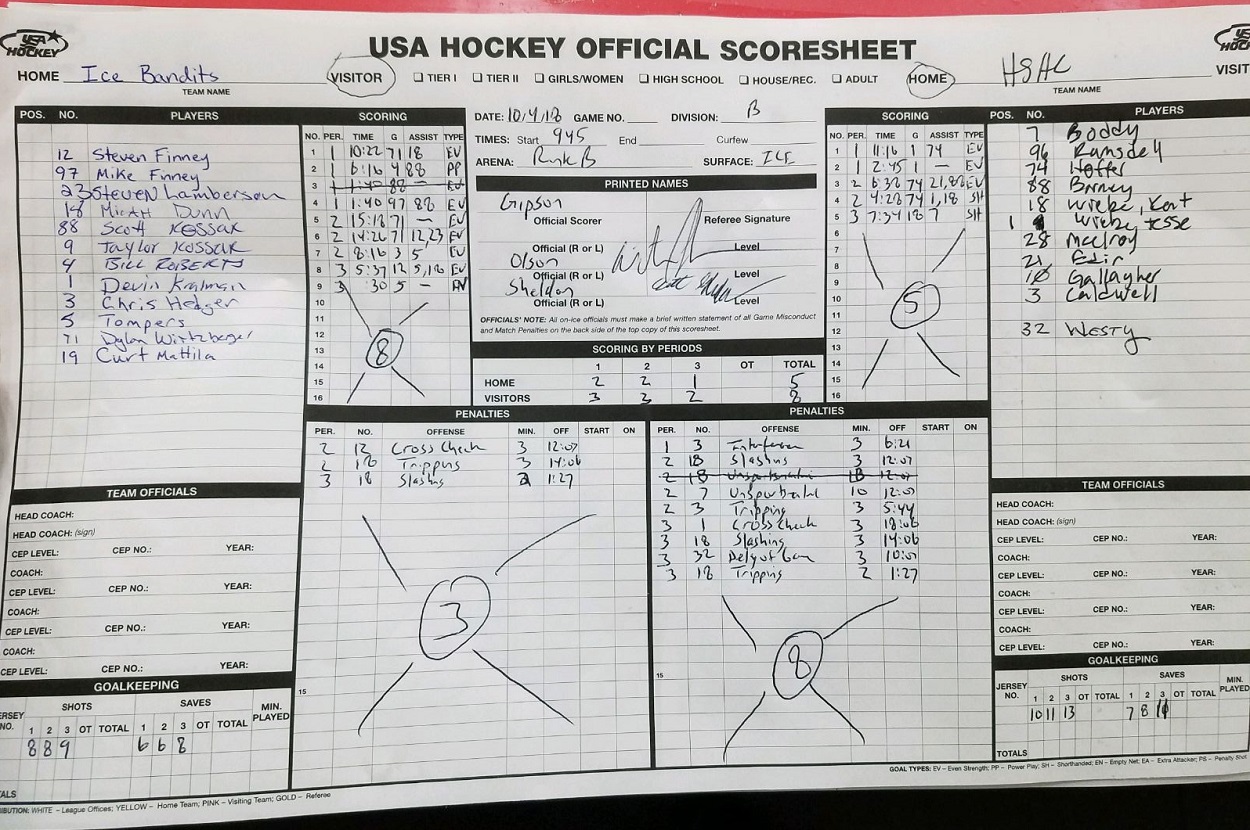 USA HOCKEY
USA HOCKEY OFFICIAL SCORESHEET
HOME Ice Bandits VISITOR TIER I TIER II GIRLS/WOMEN HIGH SCHOOL HOUSE/REC. ADULT HOME HSHC VISIT
TEAM NAME TEAM NAME
POS. NO. PLAYERS
12 Steven Finney
97 Mike Finney
23 Steven Lamberson
18 Micah Dunn
88 Scott Kossak
9 Taylor Kossak
4 Bill Roberts
1 Devin Kralman
3 Chris Hedger
5 Tompers
71 Dylan Wirtzberger
19 Curt Mattila
SCORING
NO. PER. TIME G ASSIST TYPE
1 1 10:22 71 18 EV
2 1 6:16 4 88 PP
3 1 1:40 88 — EV
4 1 1:40 97 88 EV
5 2 15:18 71 — EV
6 2 14:26 71 12,23 EV
7 2 8:16 3 5 EV
8 3 5:37 12 5,18 EV
9 3 :30 5 — EN
10
11
12
13
14
15
16
8
DATE: 10/4/18 GAME NO. DIVISION: B
TIMES: Start 945 End Curfew
ARENA: Rink B SURFACE: ICE
PRINTED NAMES
Gipson
Official Scorer Referee Signature
Official (R or L) Level
Olson
Official (R or L) Level
Sheldon
Official (R or L) Level
OFFICIALS' NOTE: All on-ice officials must make a brief written statement of all Game Misconduct
and Match Penalties on the back side of the top copy of this scoresheet.
SCORING BY PERIODS
1 2 3 OT TOTAL
HOME 2 2 1 5
VISITORS 3 3 2 8
SCORING
NO. PER. TIME G ASSIST TYPE
1 1 11:16 1 74 EV
2 1 2:45 1 — EV
3 2 6:38 74 21,88 EV
4 2 4:28 74 1,18 SH
5 3 7:34 18 7 SH
6
7
8
9
10
11
12
13
14
15
16
5
POS. NO. PLAYERS
7 Boddy
96 Ramsdell
74 Hoffer
88 Birney
18 Wiebe, Kent
1 Wiebe, Jesse
28 McElroy
21 Edir
10 Gallagher
3 Caldwell
32 Westy
PENALTIES
PER. NO. OFFENSE MIN. OFF START ON
2 12 Cross Check 3 12:07
2 18 Tripping 3 14:06
3 18 Slashing 2 1:27
15
3
PENALTIES
PER. NO. OFFENSE MIN. OFF START ON
1 3 Interference 3 6:21
2 18 Slashing 3 12:07
2 18 Unsportsmanlike 10 12:07
2 7 Unsportsmanlike 10 12:07
2 3 Tripping 3 5:44
3 1 Cross Check 3 18:06
3 18 Slashing 3 14:06
3 32 Delay of Game 3 10:01
3 18 Tripping 2 1:27
15
8
TEAM OFFICIALS
HEAD COACH:
HEAD COACH: (sign)
CEP LEVEL: CEP NO.: YEAR:
COACH:
CEP LEVEL: CEP NO.: YEAR:
COACH:
CEP LEVEL: CEP NO.: YEAR:
COACH:
CEP LEVEL: CEP NO.: YEAR:
GOALKEEPING
JERSEY NO. SHOTS SAVES MIN. PLAYED
1 2 3 OT TOTAL 1 2 3 OT TOTAL
8 8 9 6 6 8
TEAM OFFICIALS
HEAD COACH:
HEAD COACH: (sign)
CEP LEVEL: CEP NO.: YEAR:
COACH:
CEP LEVEL: CEP NO.: YEAR:
COACH:
CEP LEVEL: CEP NO.: YEAR:
COACH:
CEP LEVEL: CEP NO.: YEAR:
GOALKEEPING
JERSEY NO. SHOTS SAVES MIN. PLAYED
1 2 3 OT TOTAL 1 2 3 OT TOTAL
10 11 13 7 8 11
TOTALS
GOAL TYPES: EV – Even Strength; PP – Power Play; SH – Shorthanded; EN – Empty Net; EA – Extra Attacker; PS – Penalty Shot
ALS
BUTION: WHITE – League Offices; YELLOW – Home Team; PINK – Visiting Team; GOLD – Referee